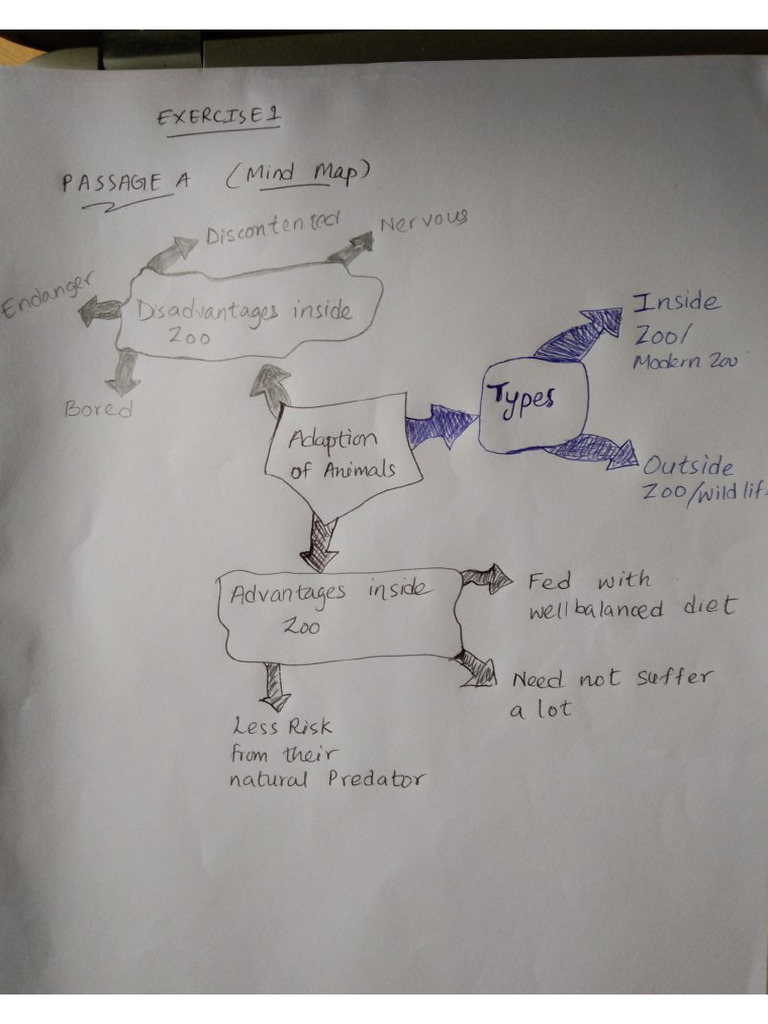 EXERCISE 1
PASSAGE A (Mind Map)
Discontented
Nervous
Endanger
Disadvantages inside
Zoo
Bored
Types
Inside
Zoo/
Modern Zoo
Outside
Zoo/wild lif
Adaption
of Animals
Advantages inside
Zoo
Fed with
wellbalanced diet
Need not suffer
a lot
Less Risk
from their
natural Predator